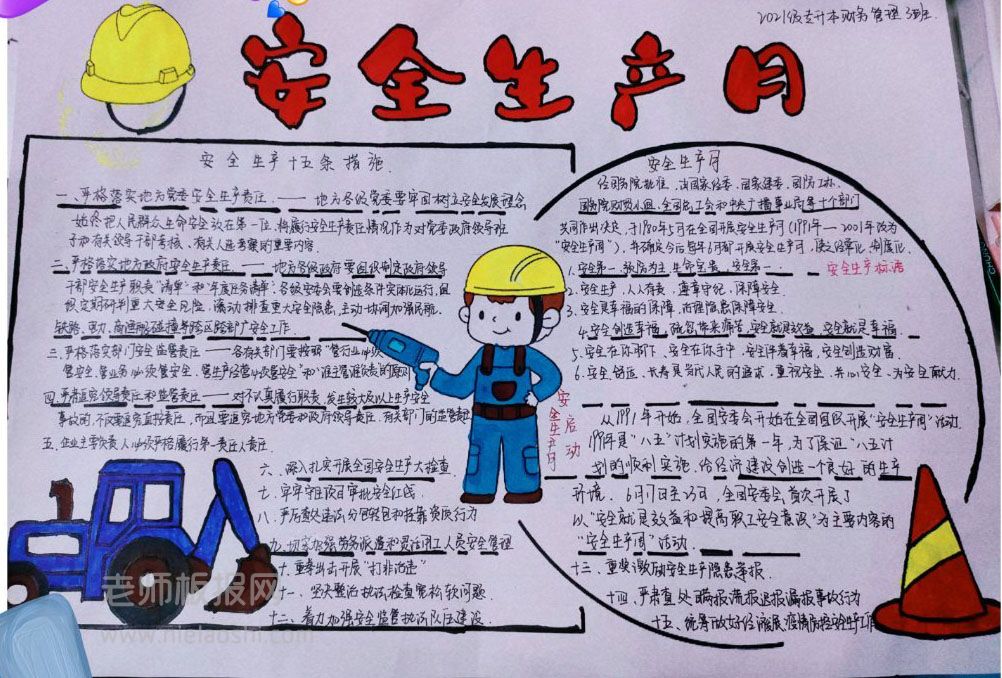 2021级专升本财务管理3班
安全生产月
安全生产十五条措施
一、严格落实地方党委安全生产责任 —— 地方各级党委要牢固树立安全发展理念
始终把人民群众生命安全放在第一位,将履行安全生产责任情况作为对党委政府领导班
子和有关领导干部考核、有关人选考察的重要内容
二、严格落实地方政府安全生产责任 —— 地方各级政府要组织制定政府领导
干部安全生产职责"清单"和"年度任务清单",各级安委会要创造条件实体化运行,组
织定期研判重大安全风险,滚动排查重大安全隐患,主动协调加强民航、
铁路、电力、商渔船碰撞等跨区跨部门安全工作
三、严格落实部门安全监管责任 —— 各有关部门要按照"管行业必须
管安全、管业务必须管安全、管生产经营必须管安全"和"谁主管谁负责"的原则
四、严肃追究领导责任和监管责任 —— 对不认真履行职责,发生较大及以上生产安全
事故的,不仅要追究直接责任,而且要追究地方党委和政府领导责任、有关部门的监管责任
五、企业主要负责人必须严格履行第一责任人责任
六、深入扎实开展全国安全生产大检查
七、牢牢守住项目审批安全红线
八、严厉查处违法分包转包和挂靠资质行为
九、切实加强劳务派遣和灵活用工人员安全管理
十、重拳出击开展"打非治违"
十一、坚决整治执法检查宽松软问题
十二、着力加强安全监管执法队伍建设
安全生产月
启动
安全生产月
经国务院批准,由国家经委、国家建委、国防工办、
国务院财贸小组、全国总工会和中央广播事业局等十个部门
共同作出决定,于1980年5月在全国开展安全生产月(1991年—2001年改为
"安全生产周"),并确定今后每年6月都开展安全生产月,使之经常化、制度化
安全生产标语
1.安全第一,预防为主,生命宝贵,安全第一
2.安全生产,人人有责,遵章守纪,保障安全
3.安全是幸福的保障,治理隐患保障安全
4.安全创造幸福,疏忽带来痛苦,安全就是效益,安全就是幸福
5.安全在你脚下,安全在你手中,安全伴着幸福,安全创造财富
6.安全、舒适、长寿是当代人民的追求,重视安全、关心安全、为安全献力
从1991年开始,全国安委会开始在全国组织开展"安全生产周"活动
1991年是"八五"计划实施的第一年,为了保证"八五计
划的顺利实施,给经济建设创造一个良好的生产
环境,6月17日至23日,全国安委会首次开展了
以"安全就是效益和提高职工安全意识"为主要内容的
"安全生产周"活动
十三、重奖激励安全生产隐患举报
十四、严肃查处瞒报谎报迟报漏报事故行为
十五、统筹做好经济发展、疫情防控安全生产工作
老师板报网